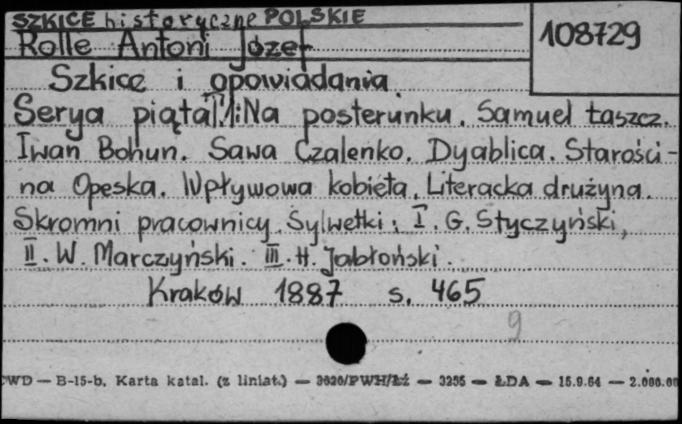 SZKICE historyczne POLSKIE
108729
Rolle Antoni Józef
Szkice i opowiadania
Serya piąta. Na posterunku. Samuel Łaszcz.
Iwan Bohun. Sawa Czalenko. Dyablica. Starości-
na Opeska. Wpływowa kobieta. Literacka drużyna.
Skromni pracownicy. Sylwetki: I. G. Styczyński,
II. W. Marczyński. III. H. Jabłoński.
Kraków 1887 s. 465
9
CWD — B-15-b. Karta katal. (z liniat.) — 3626/PWH/Łź — 3255 — ŁDA — 15.9.64 — 2.000.00